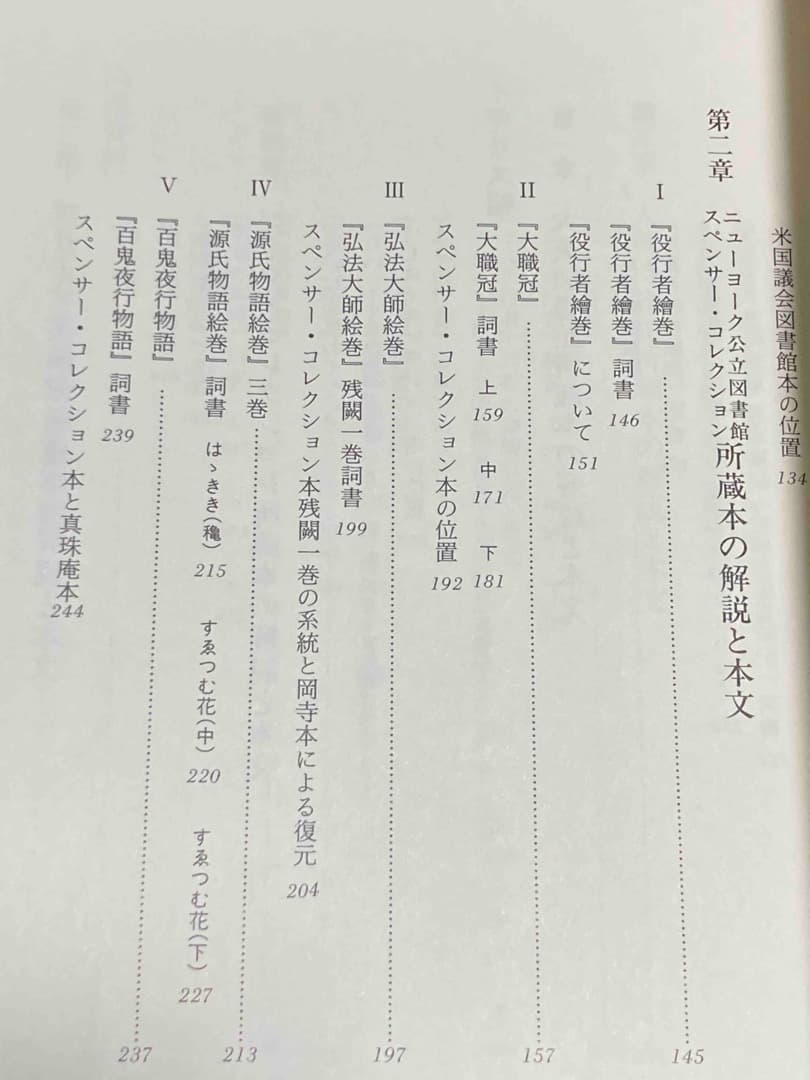 米国議会図書館本の位置 134
第二章 ニューヨーク公立図書館
スペンサー・コレクション 所蔵本の解説と本文
I 『役行者繪巻』 145
『役行者繪巻』詞書 146
『役行者繪巻』について 151
II 『大職冠』 157
『大職冠』詞書 上 159 中 171 下 181
スペンサー・コレクション本の位置 192
III 『弘法大師絵巻』 197
『弘法大師絵巻』残闕一巻詞書 199
スペンサー・コレクション本残闕一巻の系統と岡寺本による復元 204
IV 『源氏物語絵巻』三巻 213
『源氏物語絵巻』詞書 はゝきき(穐) 215 すゑつむ花(中) 220 すゑつむ花(下) 227
V 『百鬼夜行物語』 237
『百鬼夜行物語』詞書 239
スペンサー・コレクション本と真珠庵本 244